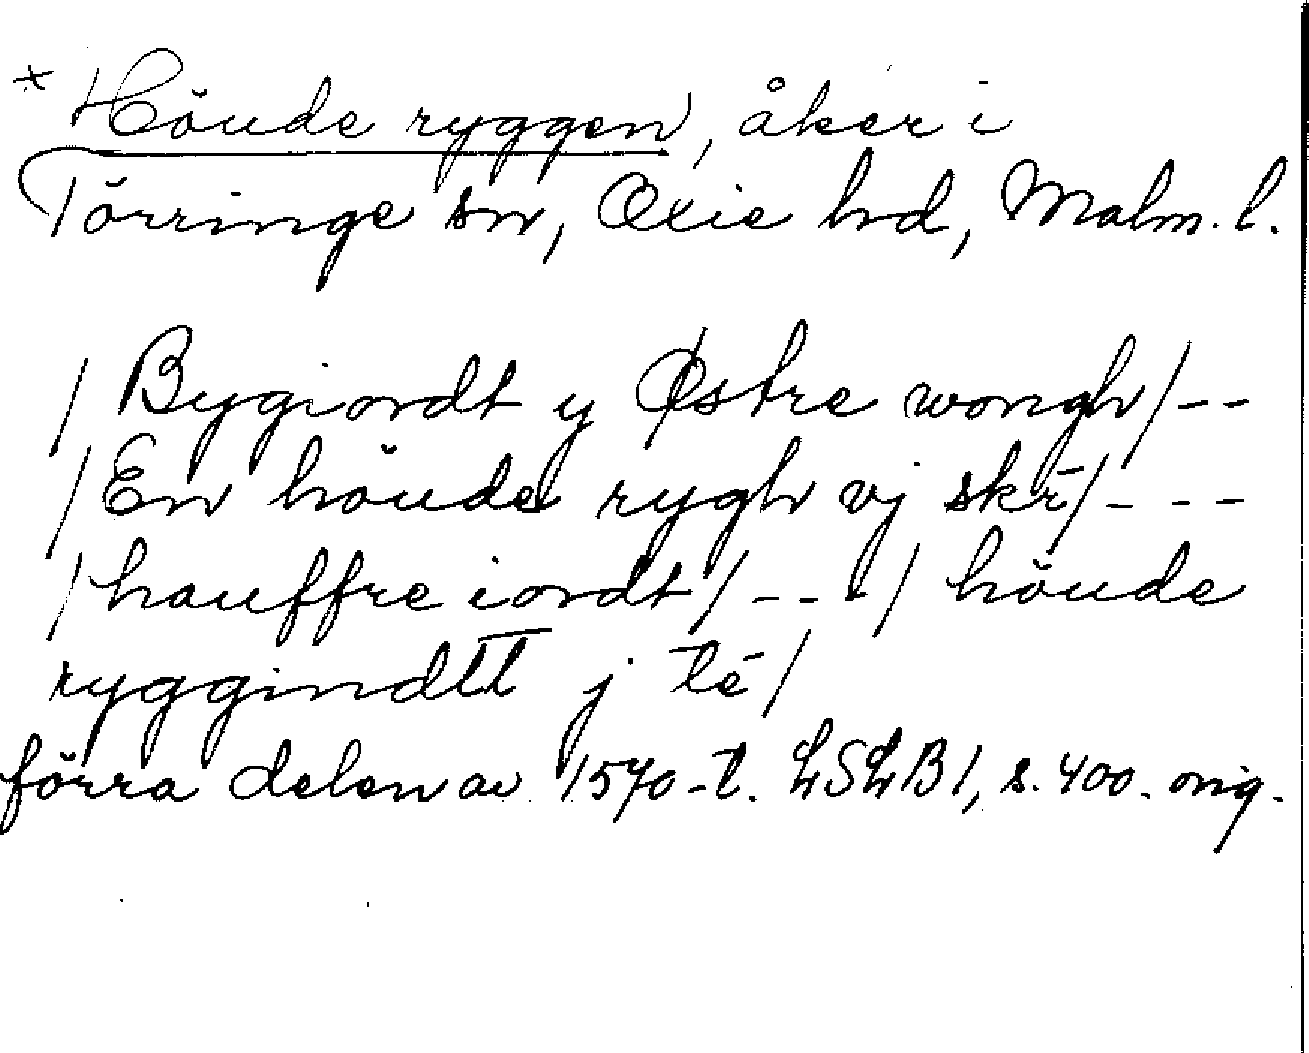 * Höude ryggen, åker i
Törringe sn, Oxie hd, Malm. l.
/ Bygiordt y Østre wongh / - -
/ En höude rygh vj skr̄ / - - -
/ hauffre iordt / - - - / höude
ryggindtt j tē /
förra delen av 1570-t. LSLB 1, s. 400. orig.